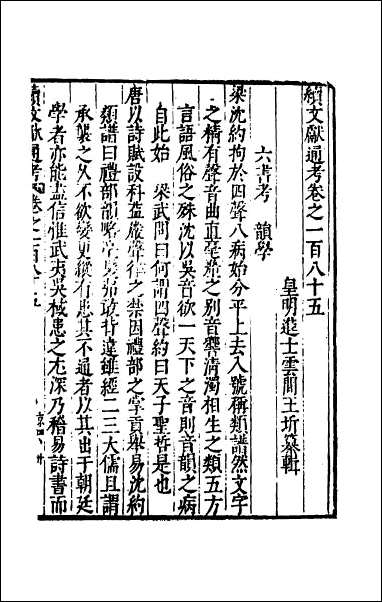 續文獻通考卷之一百八十五
皇明進士雲間王圻纂輯
六書考 韻學
梁沈約拘於四聲八病始分平上去入號稱類譜然文字
之精有聲音曲直毫釐之別音響清濁相生之類五方
言語風俗之殊沈以吳音欲一天下之音則音韻之病
自此始 梁武問曰何謂四聲約曰天子聖哲是也
唐以詩賦設科益嚴聲律之禁因禮部之掌貢舉易沈約
類譜曰禮部韻略字莫敢持違雖經二三大儒且謂
承襲之久不欲變更縱有患其不通者以其出于朝廷
學者亦能盡信惟武夷吳棫患之尤深乃稽易詩書而
續文獻通考卷之一百八十五